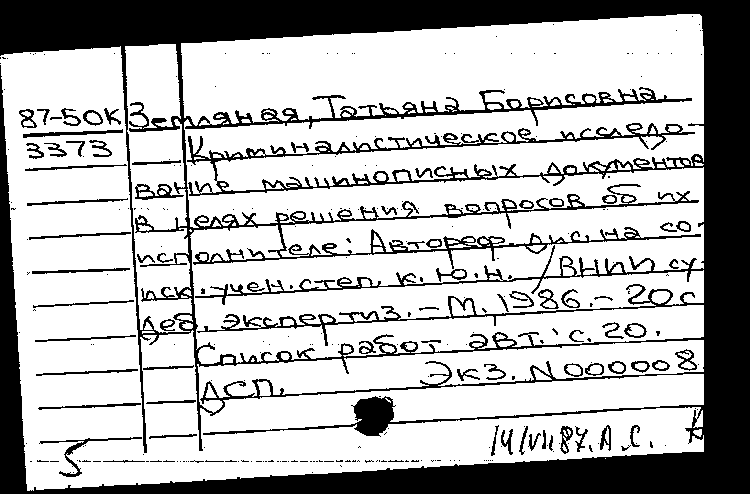 87-50К Земляная, Татьяна Борисовна.
3373 Криминалистическое исследо-
вание машинописных документов
в целях решения вопросов об их
исполнителе: Автореф. дис. на со-
иск. учен. степ. к. ю. н. / ВНИИ су-
деб. экспертиз. - М. 1986. - 20 с
Список работ авт.: с. 20.
ДСП. Экз. N000008.
5 14/VII 87. А. С.